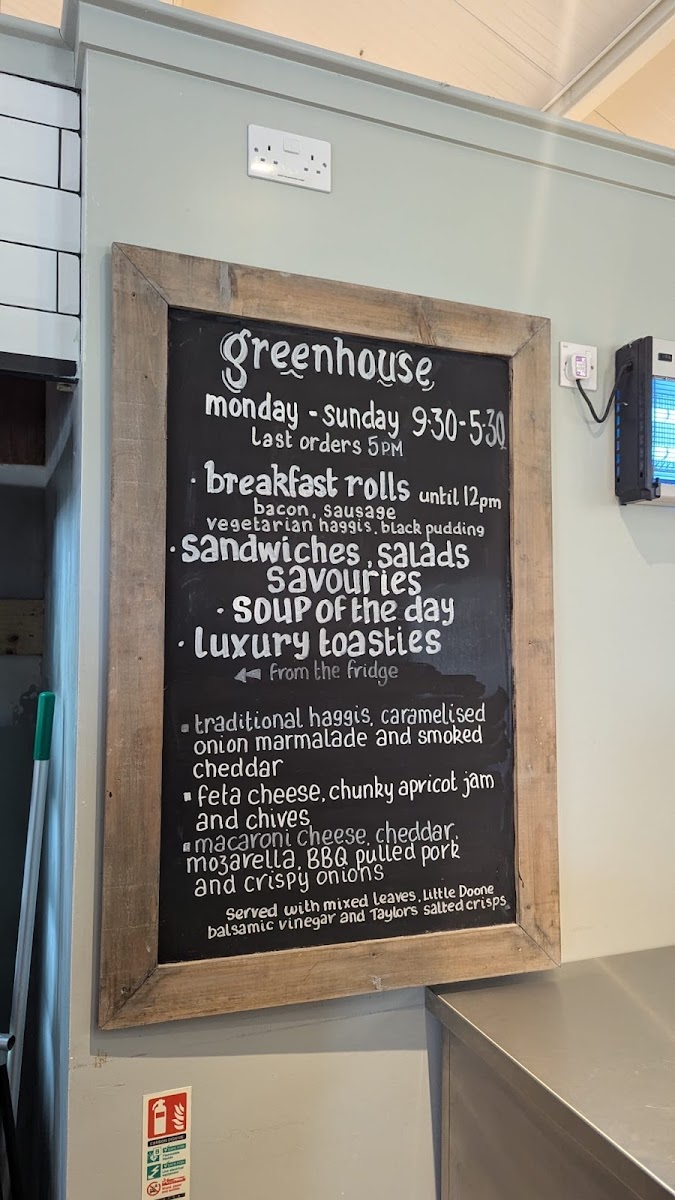 greenhouse
monday - sunday 9:30-5:30
Last orders 5PM
· breakfast rolls until 12pm
bacon, sausage
vegetarian haggis, black pudding
· sandwiches, salads
savouries
· soup of the day
· luxury toasties
from the fridge
▪ traditional haggis, caramelised
onion marmalade and smoked
cheddar
▪ feta cheese, chunky apricot jam
and chives
▪ macaroni cheese, cheddar,
mozarella, BBQ pulled pork
and crispy onions
Served with mixed leaves, Little Doone
balsamic vinegar and Taylors salted crisps